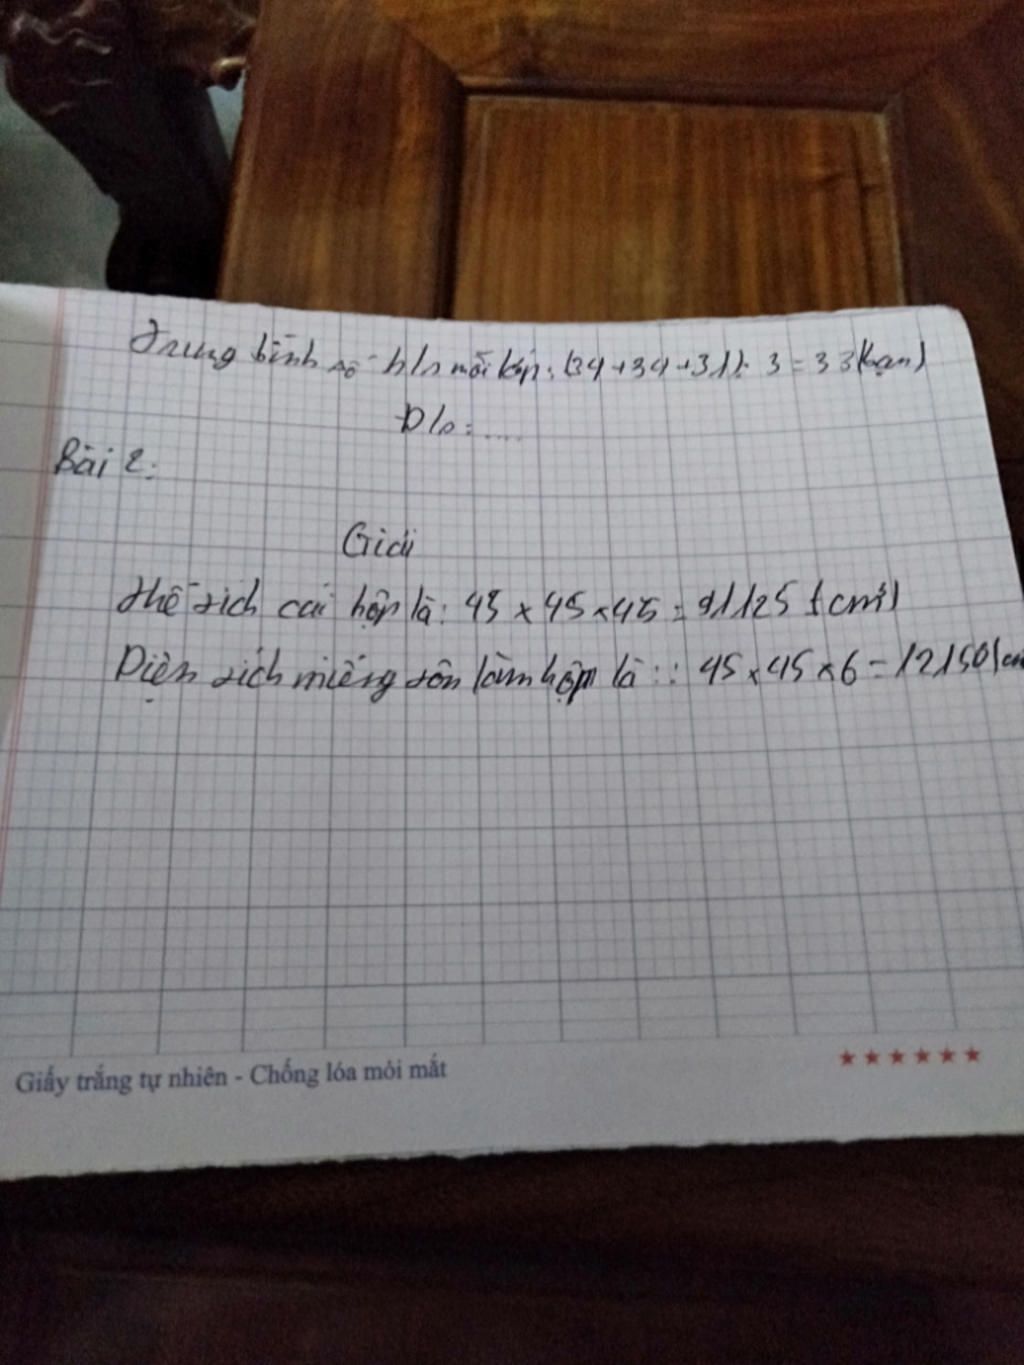 Trung bình số h/s mỗi lớp: (34 + 34 + 31): 3 = 33 (bạn)
Đ/s: ....
Bài 2:
Giải
Thể tích cái hộp là: 45 x 45 x 45 = 91125 (cm³)
Diện tích miếng tôn làm hộp là:: 45 x 45 x 6 = 12150 (cm
Giấy trắng tự nhiên - Chống lóa mỏi mắt